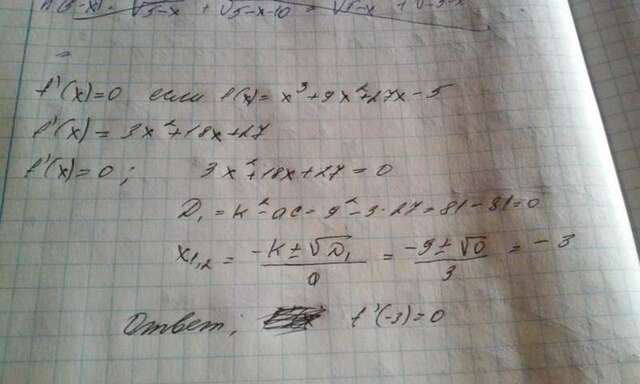 f(5-x) = √5-x + √5-x-10 = √5-x + √-5-x
=
f'(x)=0 если f(x)= x³+9x²+27x-5
f'(x) = 3x²+18x+27
f'(x)=0; 3x²+18x+27=0
D₁ = k²-ac = 9²-3·27=81-81=0
x₁,₂ = (-k±√D₁)/a = (-9±√0)/3 = -3
Ответ; f'(-3)=0